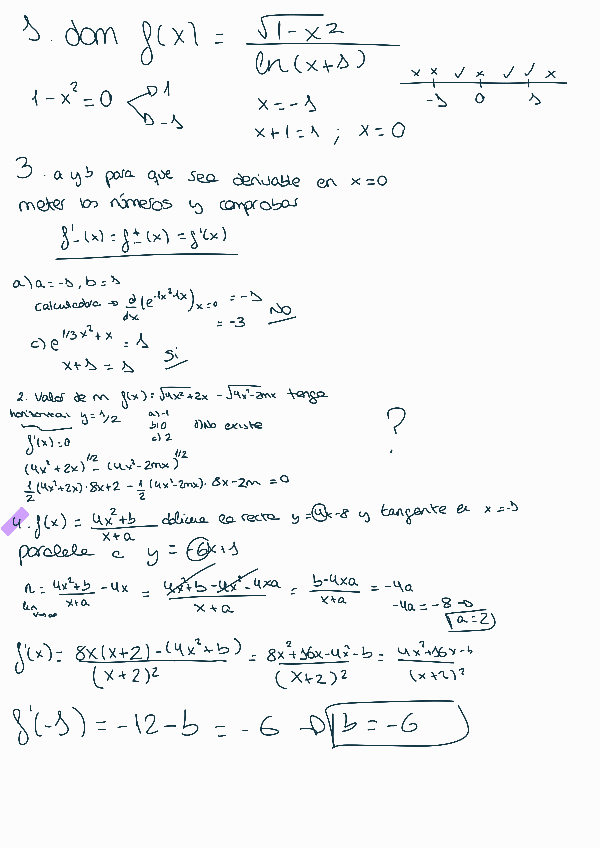 1. dom f(x) = √1-x2 / ln(x+1)
1-x² = 0 → 1 → -1
x = -1
x+1 = 1 ; x = 0
x x ✓ x ✓ ✓ x
-1 0 1
3. a y b para que sea derivable en x=0
meter los números y comprobar
f'-(x) = f'+(x) = f'(x)
a) a = -1, b = 1
calculadora → d/dx (e^-1x²-1x) x=0 = -1
= -3 No
c) e^1/3x²+x = 1
x+1 = 1 Si
2. Valor de m f(x) = √4x²+2x - √4x²-2mx tenga
horizontal y = 1/2 a)-1 b)0 c)2 d)No existe
?
f'(x)=0
(4x²+2x)^1/2 - (4x²-2mx)^1/2
1/2 (4x²+2x)·8x+2 - 1/2 (4x²-2mx)·8x-2m = 0
4. f(x) = 4x²+b / x+a oblicua la recta y=4x-8 y tangente en x=-1
paralela a y = -6x+1
n = 4x²+b / x+a - 4x = 4x²+b-4x²-4xa / x+a = b-4xa / x+a = -4a
lim x→∞
-4a = -8 → a=2
f'(x) = 8x(x+2)-(4x²+b) / (x+2)² = 8x²+16x-4x²-b / (x+2)² = 4x²+16x-b / (x+2)²
f'(-1) = -12-b = -6 → b = -6